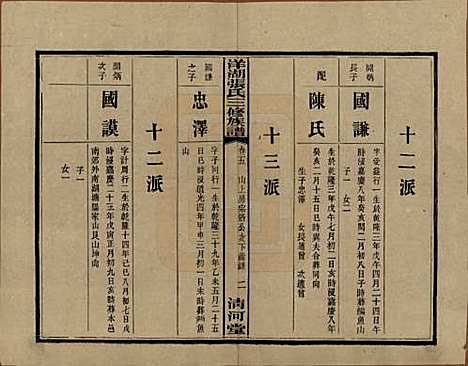 十二派
開炳長子
國謙
字受益行一生於乾隆三年戊午四月二十四日
時歿嘉慶八年癸亥閏二月初八日子時葬鯿魚
山
配
陳氏
生於乾隆三年戊午七月初二日亥時歿嘉慶八年
癸亥二月十五日巳時與夫合葬同向
生子忠澤 女長適曾 次適曾
十三派
洋湖張氏三修族譜
卷五
二
清河堂
國謙之子
忠澤
字子同行一生於乾隆三十九年乙未五月二十五
日巳時歿道光四年甲申三月初一日未時葬鯿魚
山
十二派
開炳次子
國謨
字計周行二生於乾隆十四年己巳八月初七日戌
時歿嘉慶二十三年戊寅正月初九日亥時葬本邑
南郊外南湖塘羅家山艮山坤向
子一
女一